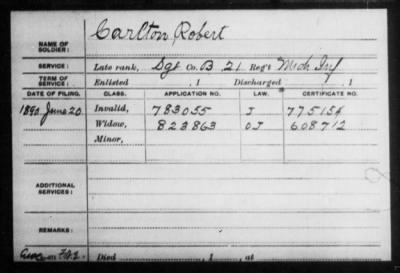 NAME OF SOLDIER: Carlton, Robert
SERVICE: Late rank, Sgt Co. B, 21 Reg't Mich Inf
TERM OF SERVICE: Enlisted , 1 Discharged , 1
DATE OF FILING. CLASS. APPLICATION NO. LAW. CERTIFICATE NO.
1890 June 20 Invalid, 783055 J 775154
Widow, 823863 OJ 608712
Minor,
ADDITIONAL SERVICES:
REMARKS:
Died , 1 , at